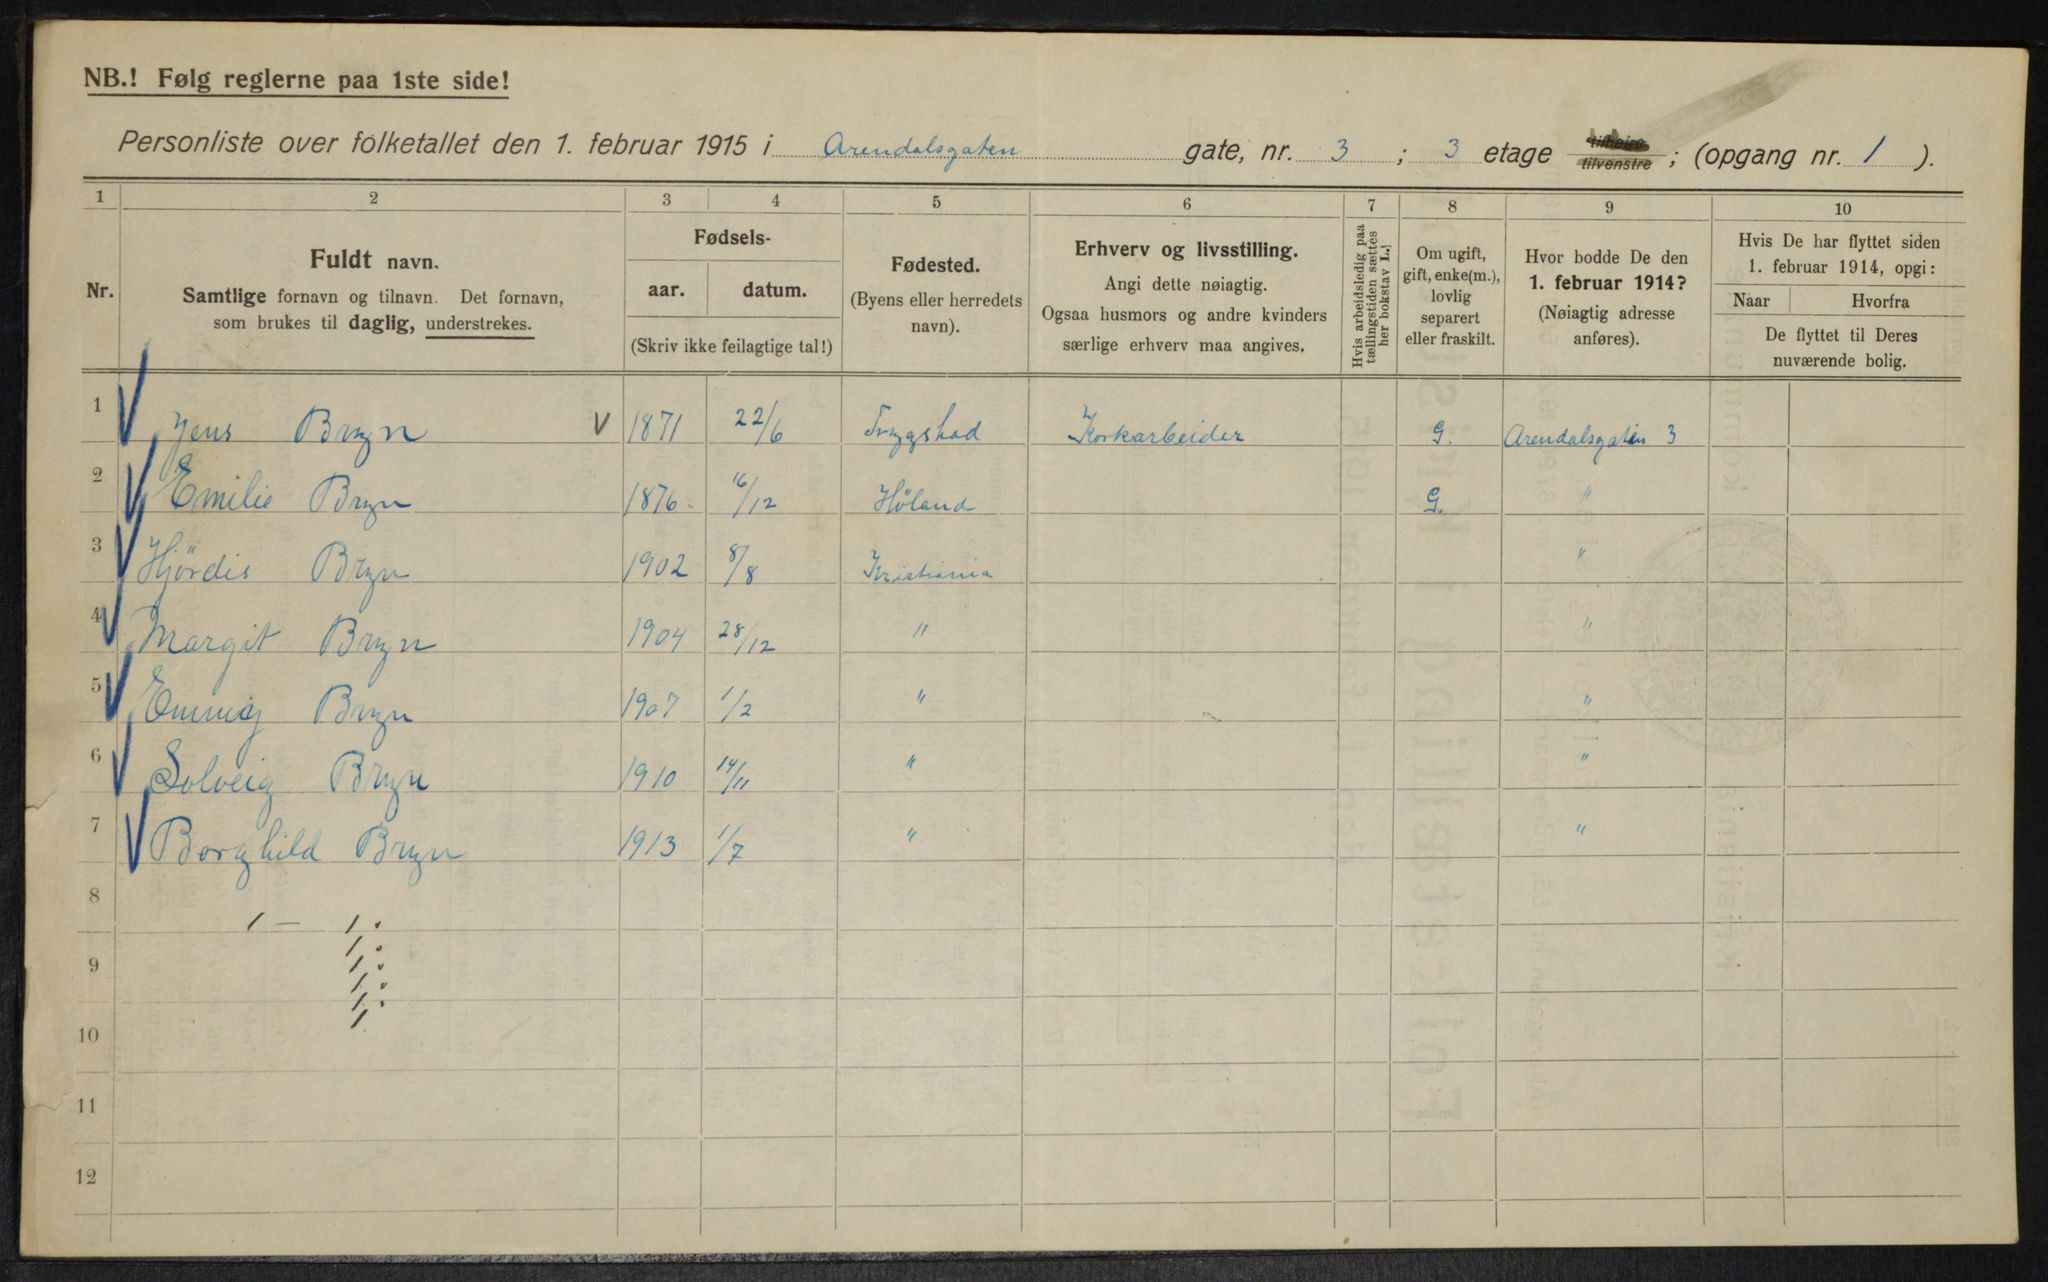 NB.! Følg reglerne paa 1ste side!
Personliste over folketallet den 1. februar 1915 i Arendalsgaten gate, nr. 3 ; 3 etage tilhøire tilvenstre ; (opgang nr. 1 ).
1 2 3 4 5 6 7 8 9 10
Nr.
Fuldt navn.
Samtlige fornavn og tilnavn. Det fornavn,
som brukes til daglig, understrekes.
Fødsels-
aar. datum.
(Skriv ikke feilagtige tal!)
Fødested.
(Byens eller herredets
navn).
Erhverv og livsstilling.
Angi dette nøiagtig.
Ogsaa husmors og andre kvinders
særlige erhverv maa angives.
Hvis arbeidsledig paa
tællingstiden sættes
her bokstav L.!
Om ugift,
gift, enke(m.),
lovlig
separert
eller fraskilt.
Hvor bodde De den
1. februar 1914?
(Nøiagtig adresse
anføres).
Hvis De har flyttet siden
1. februar 1914, opgi:
Naar Hvorfra
De flyttet til Deres
nuværende bolig.
1 Jens Bryn 1871 22/6 Trygstad Korkarbeider G. Arendalsgaten 3
2 Emilie Bryn 1876 16/12 Høland G. "
3 Hjördis Bryn 1902 8/8 Kristiania "
4 Margit Bryn 1904 28/12 " "
5 Emmy Bryn 1907 1/2 " "
6 Solveig Bryn 1910 14/11 " "
7 Borghild Bryn 1913 1/7 " "
8
9
10
11
12